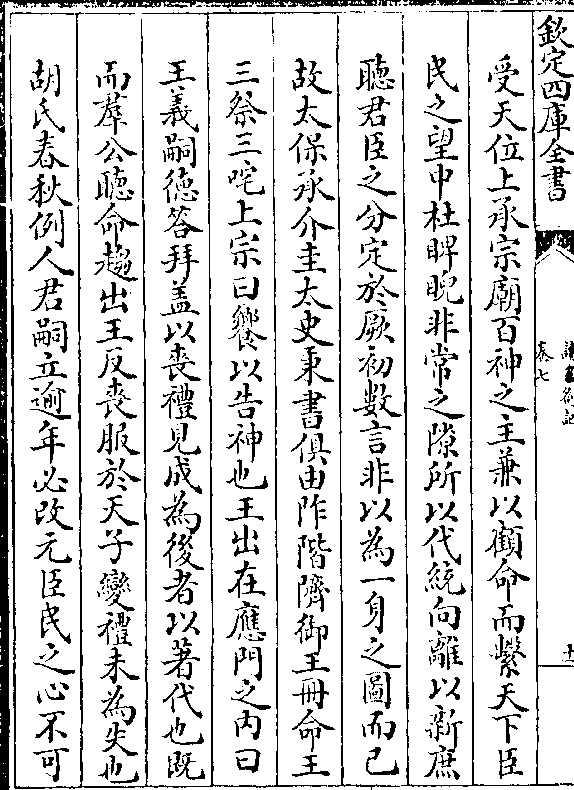 欽定四庫全書
讀書劄記
卷七
十一
受天位上承宗廟百神之主兼以顧命而繫天下臣
民之望中杜睥睨非常之隙所以代統向離以新庶
聽君臣之分定於厥初數言非以為一身之圖而已
故太保承介圭太史秉書俱由阼階隮御王冊命王
三祭三咤上宗曰饗以告神也王出在應門之内曰
王義嗣德答拜盖以喪禮見成為後者以著代也既
而羣公聽命趨出王反喪服於天子變禮未為失也
胡氏春秋例人君嗣立逾年必改元臣民之心不可